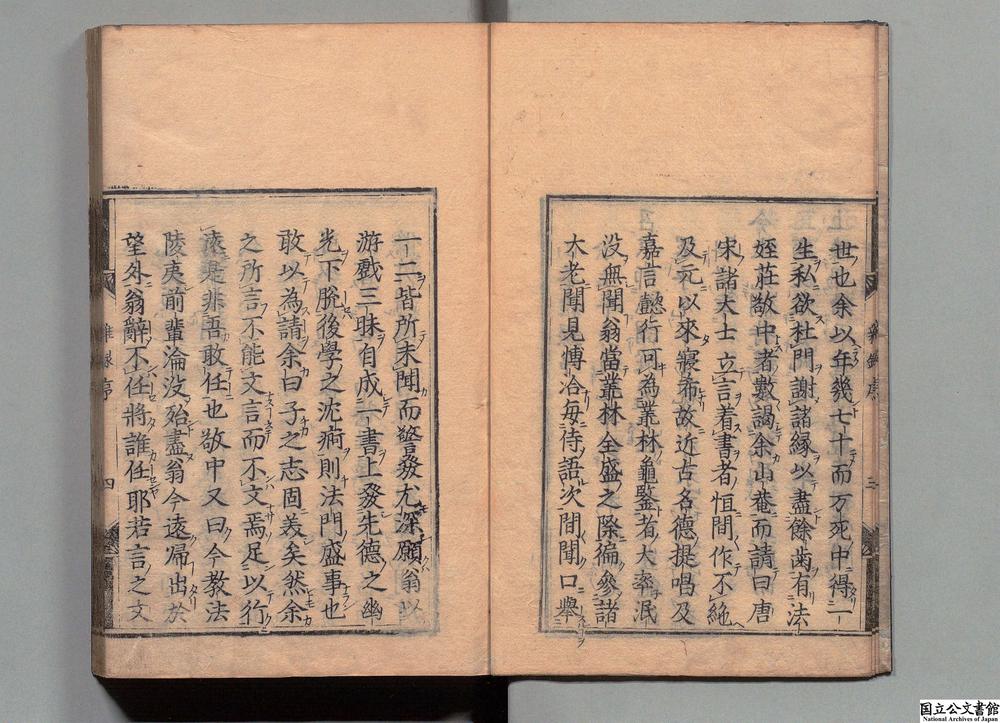 世也余以年幾七十而万死中得一
生私欲杜門謝諸縁以盡餘歯有法
姪莊敬中者數謁余山菴而請曰唐
宋諸大士立言着書者恒間作不絶
及元以來寢希故近古名德提唱及
嘉言懿行可為叢林龜鑒者大率泯
没無聞翁當叢林全盛之際徧參諸
大老聞見博洽每侍語次間聞口舉
一二皆所未聞而警發尤深願翁以
游戲三昧自成一書上發先德之幽
光下脫後學之沈痾則法門盛事也
敢以為請余曰子之志固美矣然余
之所言不能文言而不文焉足以行
遠是非吾敢任也敬中又曰今教法
陵夷前輩淪没殆盡翁今遠歸出於
望外翁辭不任將誰任耶若言之文
雜録序
三
雜録序
四
国立公文書館
National Archives of Japan